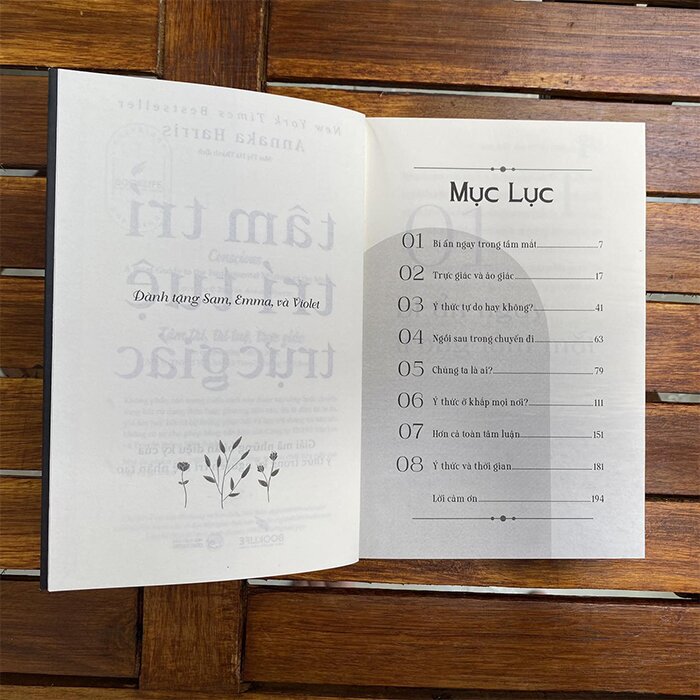 Dành tặng Sam, Emma, và Violet
New York Times Bestseller
Annaka Harris
tâm trí
Conscious
trí tuệ
trực giác
BOOKLIFE
Mục Lục
01 Bí ẩn ngay trong tầm mắt 7
02 Trực giác và ảo giác 17
03 Ý thức tự do hay không? 41
04 Ngồi sau trong chuyến đi 63
05 Chúng ta là ai? 79
06 Ý thức ở khắp mọi nơi? 111
07 Hơn cả toàn tâm luận 151
08 Ý thức và thời gian 181
Lời cảm ơn 194